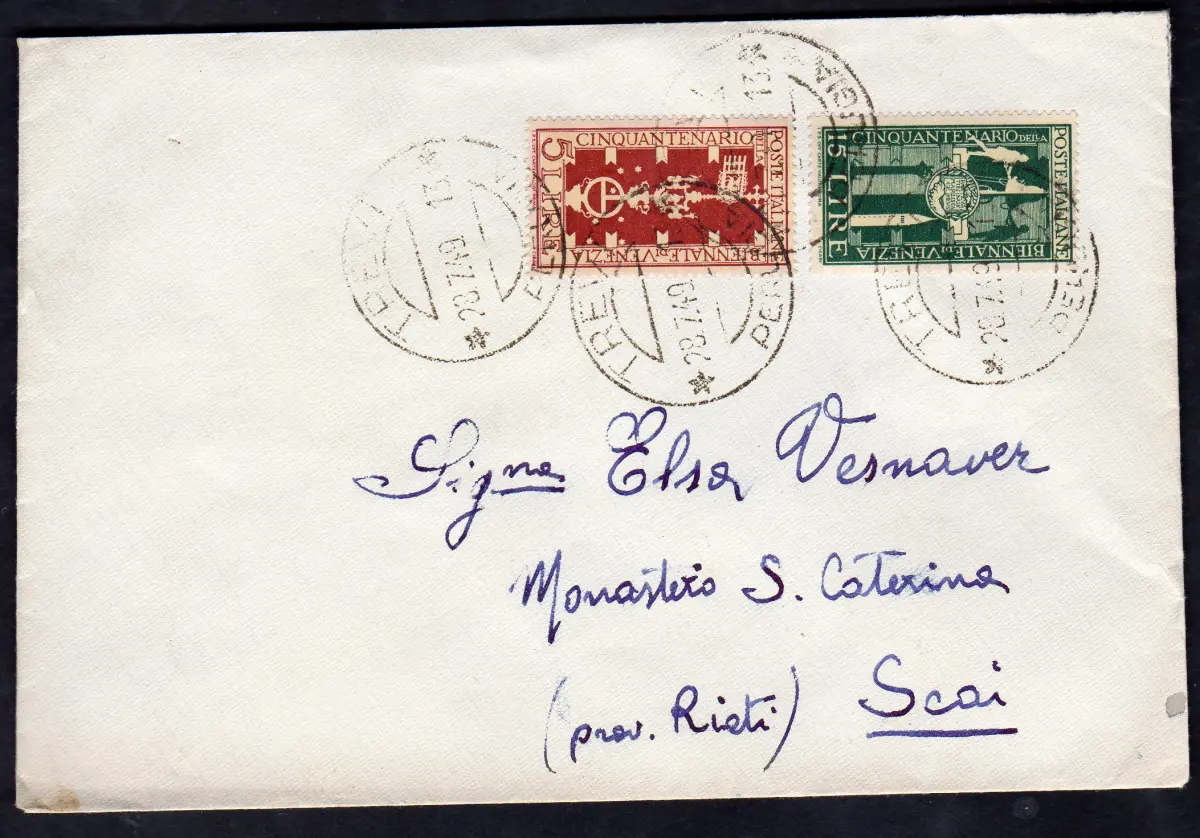 5 LIRE
CINQUANTENARIO
DELLA
BIENNALE DI VENEZIA
POSTE ITALIANE
15 LIRE
CINQUANTENARIO DELLA
BIENNALE DI VENEZIA
POSTE ITALIANE
TREVI
13
28.7.49
TREVI
28.7.49
PERUGIA
13
TRE
28.7.49
Signa Elsa Vesnaver
Monastero S. Caterina
(prov. Rieti) Scai